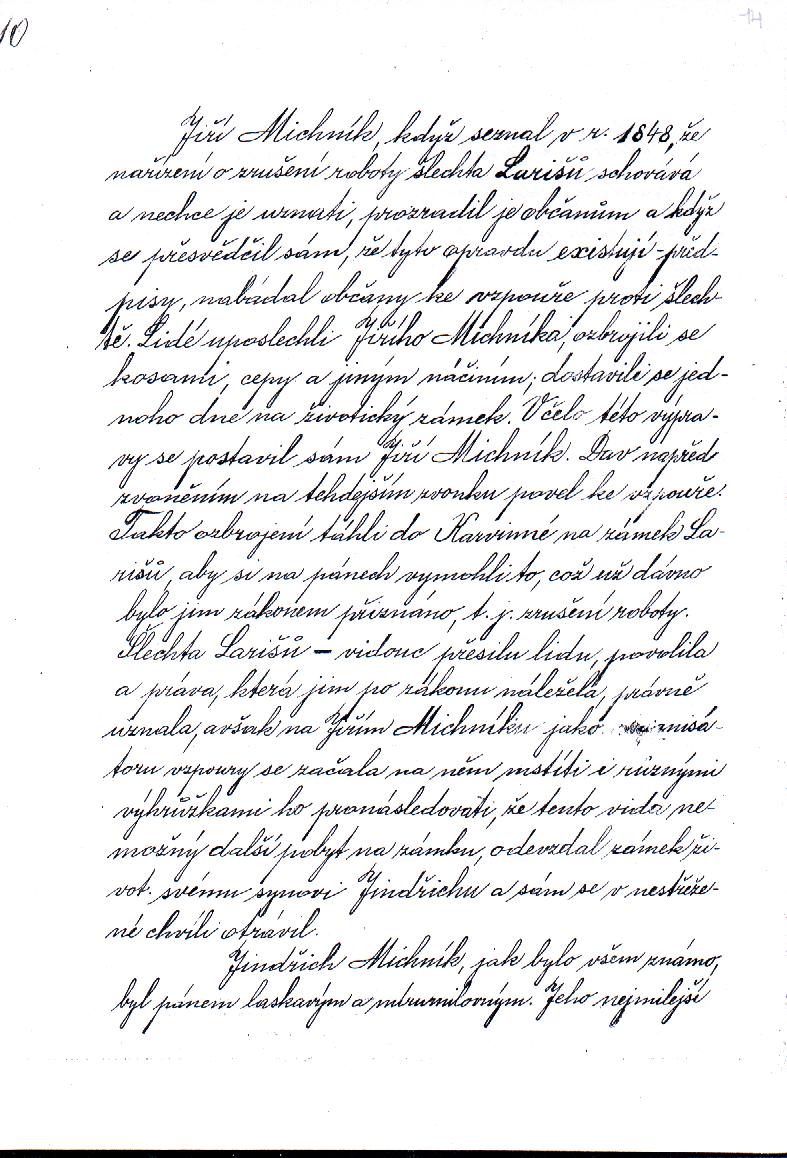 10
14
Jiří Michník, když seznal v r. 1848, že
nařízení o zrušení roboty šlechta Larišů schovává
a nechce je uznati, prozradil je občanům a když
se přesvědčil sám, že tyto opravdu existují - před-
pisy, nabádal občany ke vzpouře proti šlech-
tě. Lidé uposlechli Jiřího Michníka, ozbrojili se
kosami, cepy a jiným náčiním, dostavili se jed-
noho dne na životický zámek. V čelo této výpra-
vy se postavil sám Jiří Michník. Dav napřed
zvoněním na tehdejším zvonku povel ke vzpouře.
Takto ozbrojení táhli do Karvinné na zámek La-
rišů, aby si na pánech vymohli to, což už dávno
bylo jim zákonem přiznáno, t. j. zrušení roboty.
Šlechta Larišů - vidouc přesilu lidu, povolila
a práva, která jim po zákonu náležela, právně
uznala, avšak na Jiřím Michníku jako
toru vzpoury se začala na něm mstíti i různými
výhrůžkami ho pronásledovati, že tento vida ne-
možný další pobyt na zámku, odevzdal zámek ži-
vot. svému synovi Jindřichu a sám se v nestřeže-
né chvíli otrávil.
Jindřich Michník, jak bylo všem známo,
byl pánem laskavým a mírumilovným. Jeho nejmilejší